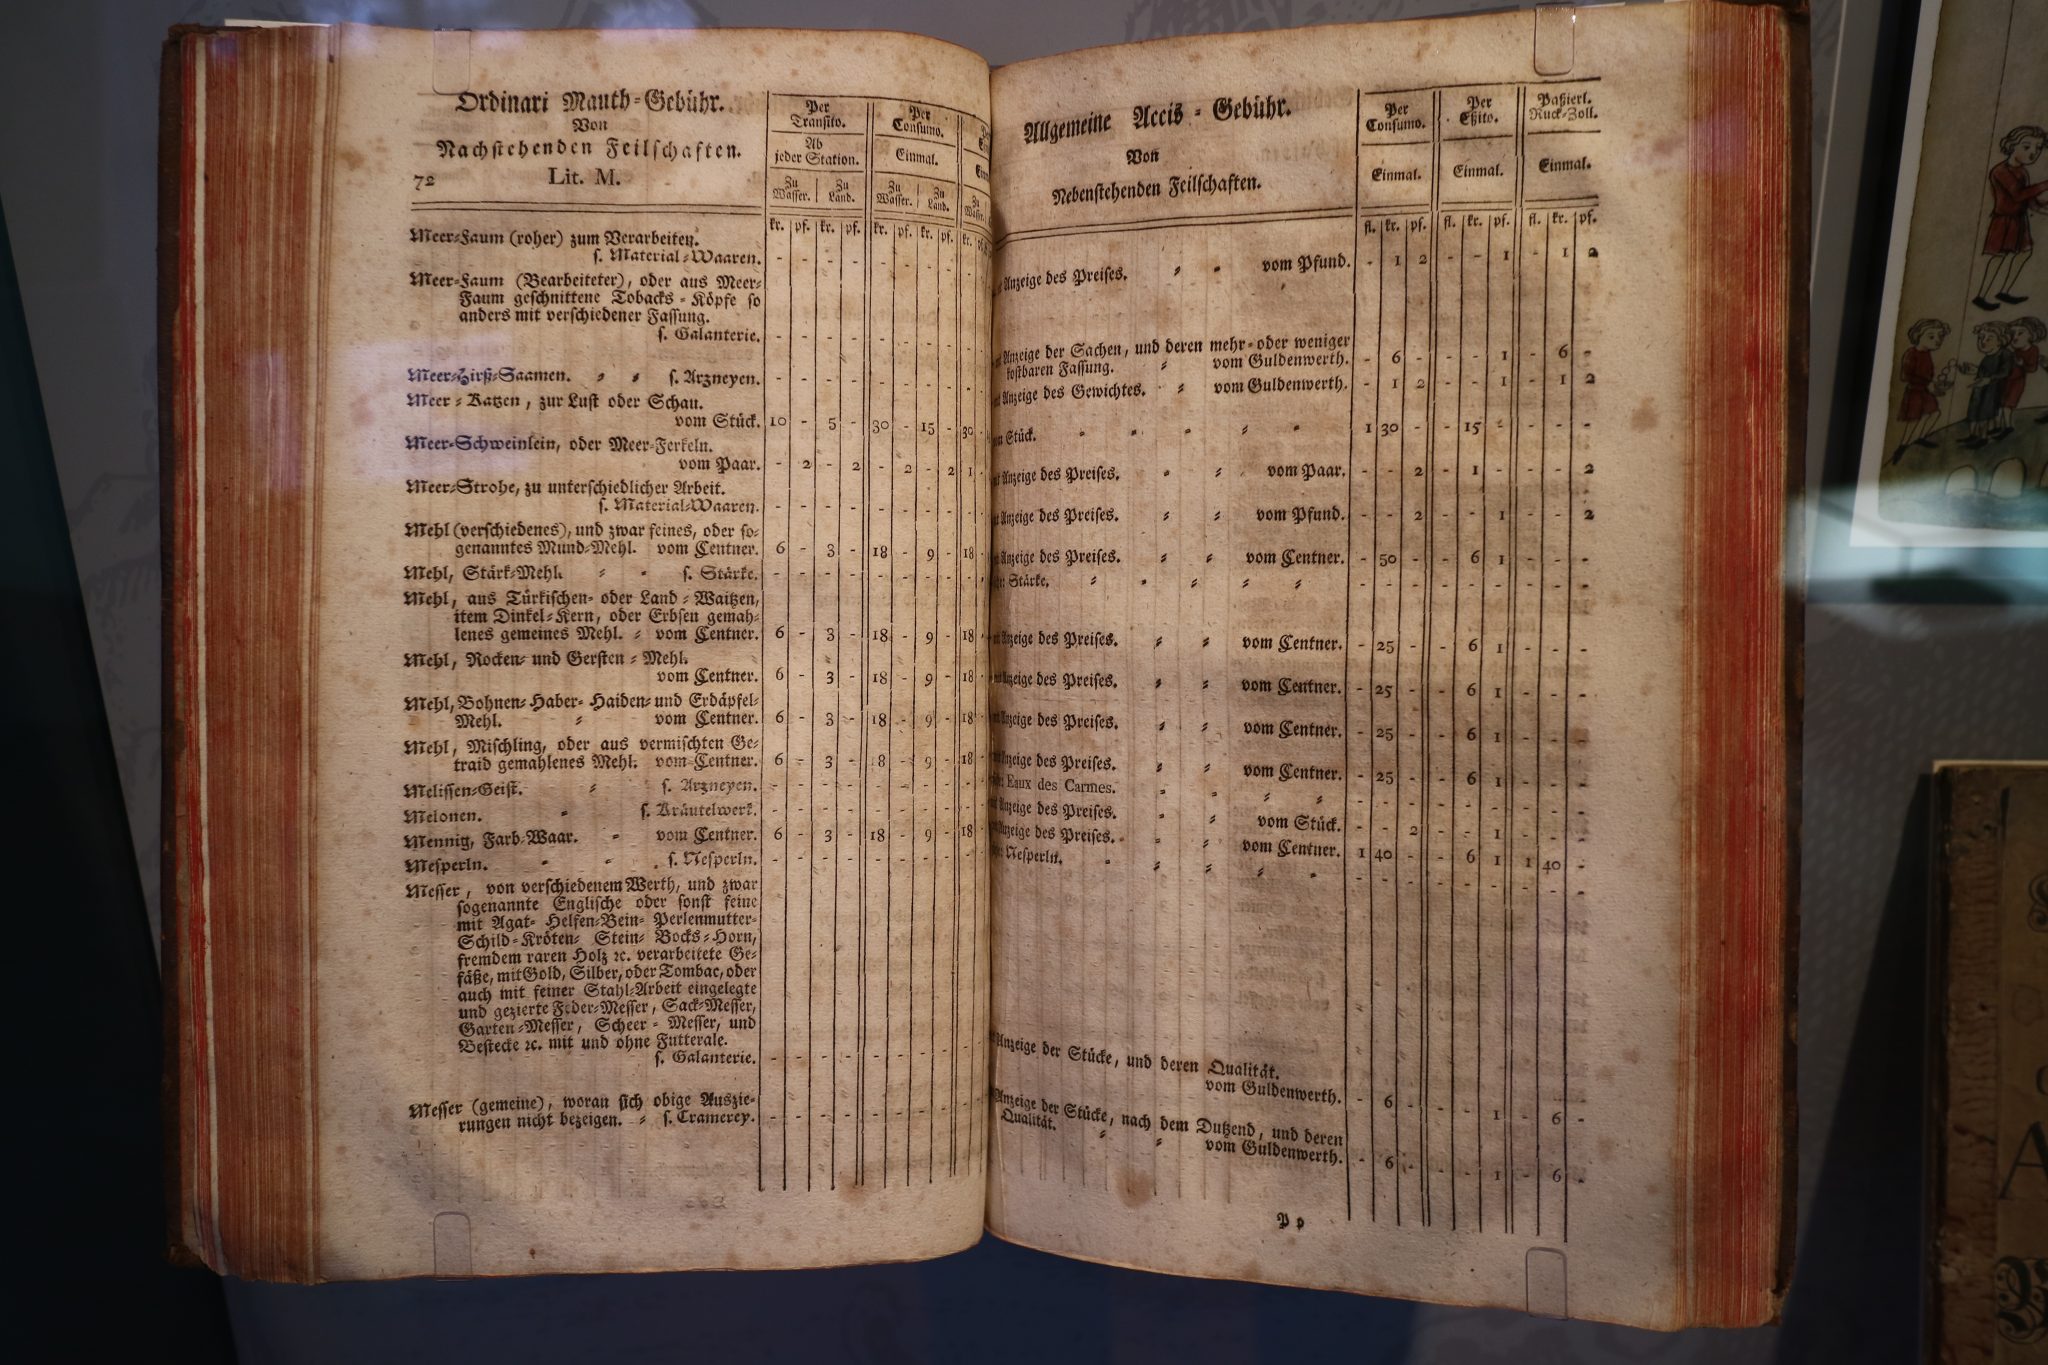 Ordinari Mauth-Gebühr.
Von
Nachstehenden Feilschaften.
72 Lit. M.
Per Transito. Per Consumo.
Ab jeder Station. Einmal.
Zu Wasser. Zu Land. Zu Wasser. Zu Land. Zu
kr. pf. kr. pf. kr. pf. kr. pf. kr.
Meer-Faum (roher) zum Verarbeiten.
s. Material-Waaren. - - - - - - - - -
Meer-Faum (Bearbeiteter), oder aus Meer-
Faum geschnittene Tobacks-Köpfe so
anders mit verschiedener Fassung.
s. Galanterie. - - - - - - - - -
Meer-Hirß-Saamen. s. Arzneyen. - - - - - - - - -
Meer-Katzen, zur Lust oder Schau.
vom Stück. 10 - 5 - 30 - 15 - 30
Meer-Schweinlein, oder Meer-Ferkeln.
vom Paar. - 2 - 2 - 2 - 2 1
Meer-Strohe, zu unterschiedlicher Arbeit.
s. Material-Waaren. - - - - - - - - -
Mehl (verschiedenes), und zwar feines, oder so-
genanntes Mund-Mehl. vom Centner. 6 - 3 - 18 - 9 - 18
Mehl, Stärk-Mehl. s. Stärke. - - - - - - - - -
Mehl, aus Türkischen- oder Land-Waitzen,
item Dinkel-Kern, oder Erbsen gemah-
lenes gemeines Mehl. vom Centner. 6 - 3 - 18 - 9 - 18
Mehl, Rocken- und Gersten-Mehl.
vom Centner. 6 - 3 - 18 - 9 - 18
Mehl, Bohnen- Haber- Haiden- und Erdäpfel-
Mehl. vom Centner. 6 - 3 - 18 - 9 - 18
Mehl, Mischling, oder aus vermischten Ge-
traid gemahlenes Mehl. vom Centner. 6 - 3 - 8 - 9 - 18
Melissen-Geist. s. Arzneyen. - - - - - - - - -
Melonen. s. Kräutelwerk. - - - - - - - - -
Mennig, Farb-Waar. vom Centner. 6 - 3 - 18 - 9 - 18
Mesperln. s. Nesperln. - - - - - - - - -
Messer, von verschiedenem Werth, und zwar
sogenannte Englische oder sonst feine
mit Agat- Helfen-Bein- Perlenmutter-
Schild-Kröten- Stein- Bocks-Horn,
fremdem raren Holz ꝛc. verarbeitete Ge-
fäße, mit Gold, Silber, oder Tombac, oder
auch mit feiner Stahl-Arbeit eingelegte
und gezierte Feder-Messer, Sack-Messer,
Garten-Messer, Scheer-Messer, und
Bestecke ꝛc. mit und ohne Futterale.
s. Galanterie. - - - - - - - - -
Messer (gemeine), woran sich obige Auszie-
rungen nicht bezeigen. s. Cramerey. - - - - - - - - -
Allgemeine Accis-Gebühr.
Von
Nebenstehenden Feilschaften.
Per Consumo. Per Eßito. Paßierl. Ruck-Zoll.
Einmal. Einmal. Einmal.
fl. kr. pf. fl. kr. pf. fl. kr. pf.
Anzeige des Preises. vom Pfund. - 1 2 - - 1 - 1 2
Anzeige der Sachen, und deren mehr- oder weniger
kostbaren Fassung. vom Guldenwerth. - 6 - - - 1 - 6 -
Anzeige des Gewichtes. vom Guldenwerth. - 1 2 - - 1 - 1 2
Stück. 1 30 - - 15 - - - -
Anzeige des Preises. vom Paar. - - 2 - 1 - - - 2
Anzeige des Preises. vom Pfund. - - 2 - - 1 - - 2
Anzeige des Preises. vom Centner. - 50 - - 6 1 - - -
Stärke. - - - - - - - - -
Anzeige des Preises. vom Centner. - 25 - - 6 1 - - -
Anzeige des Preises. vom Centner. - 25 - - 6 1 - - -
Anzeige des Preises. vom Centner. - 25 - - 6 1 - - -
Anzeige des Preises. vom Centner. - 25 - - 6 1 - - -
Eaux des Carmes. - - - - - - - - -
Anzeige des Preises. vom Stück. - - 2 - - 1 - - -
Anzeige des Preises. vom Centner. 1 40 - - 6 1 1 40 -
Nesperln. - - - - - - - - -
Anzeige der Stücke, und deren Qualität.
vom Guldenwerth. - 6 - - - 1 - 6 -
Anzeige der Stücke, nach dem Dutzend, und deren
Qualität. vom Guldenwerth. - 6 - - - 1 - 6 -
P p